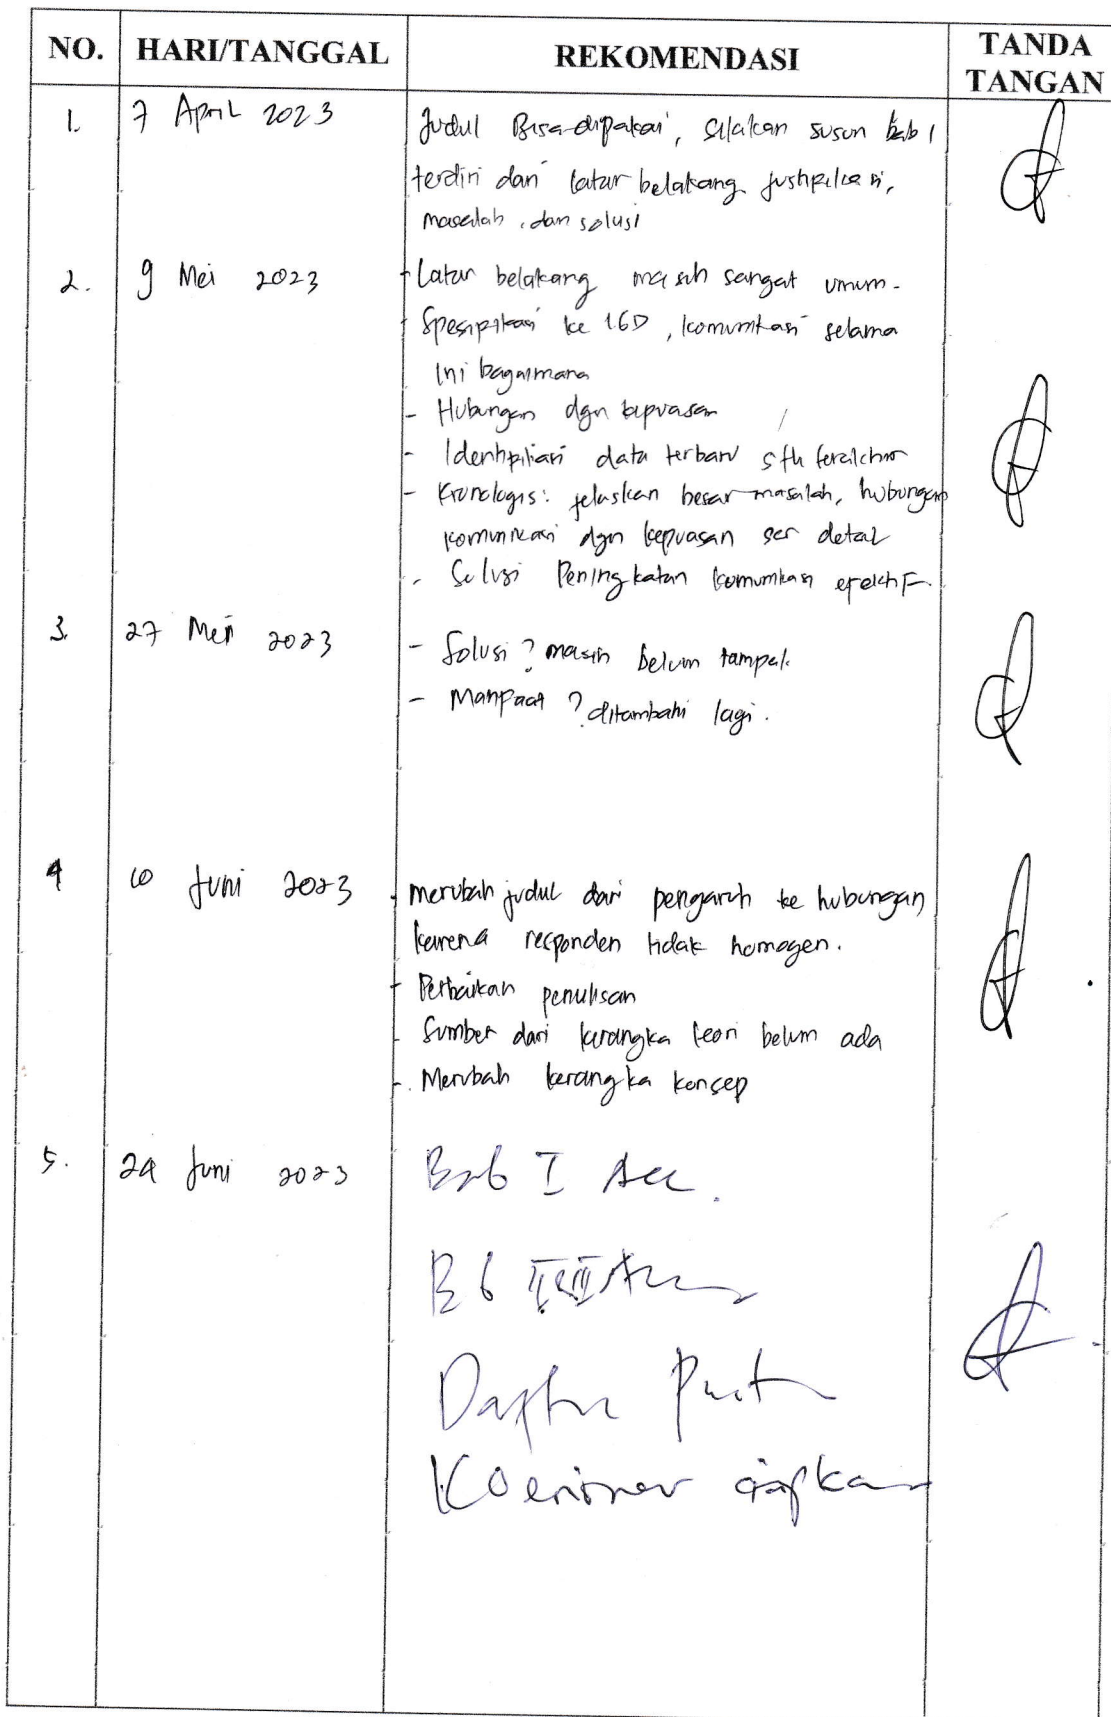 NO. HARI/TANGGAL REKOMENDASI TANDA TANGAN
1. 7 April 2023 Judul Bisa dipakai, silakan susun bab 1
terdiri dari latar belakang justipikasi,
masalah, dan solusi
2. 9 Mei 2023 - Latar belakang masih sangat umum.
- Spesipikasi ke IGD, komunikasi selama
ini bagaimana
- Hubungan dgn kepuasan
- Identipikasi data terbaru sth terakhir
- Kronologis: jelaskan besar masalah, hubungan
komunikasi dgn kepuasan scr detail
- Solusi Peningkatan komunikasi efektif.
3. 27 Mei 2023 - Solusi ? masih belum tampak
- Manpaat ? ditambahi lagi.
4 10 Juni 2023 - merubah judul dari pengaruh ke hubungan
karena responden tidak homogen.
- Perbaikan penulisan
- Sumber dari kerangka teori belum ada
- Merubah kerangka konsep
5. 24 Juni 2023 Bab I Acc.
Bab II & III Acc
Daftar Pust
Koesioner siapkan